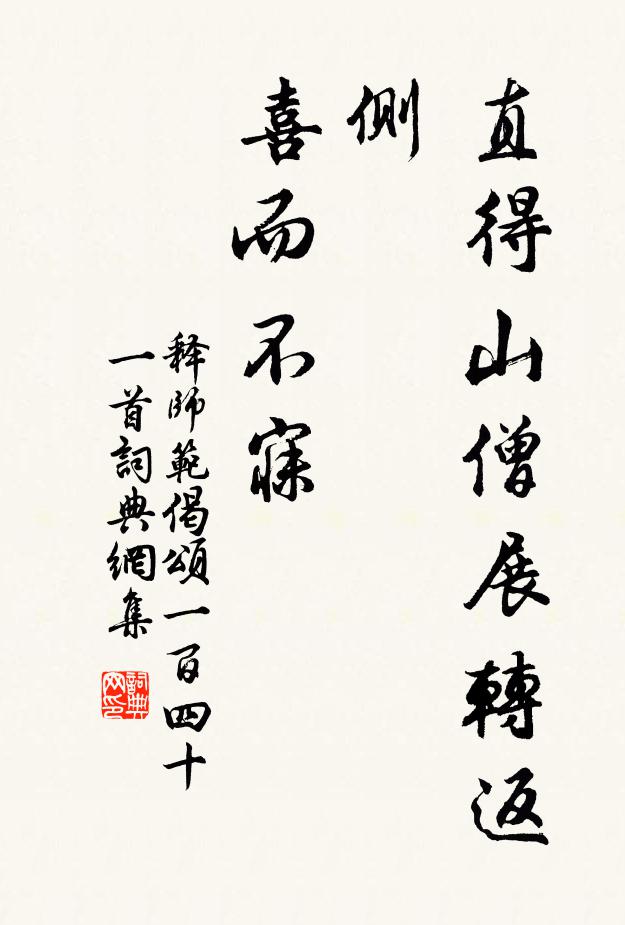 直得山僧展轉返
側
喜而不寐
释師範偈頌一百四十
一首詞典網集
詞典
网印